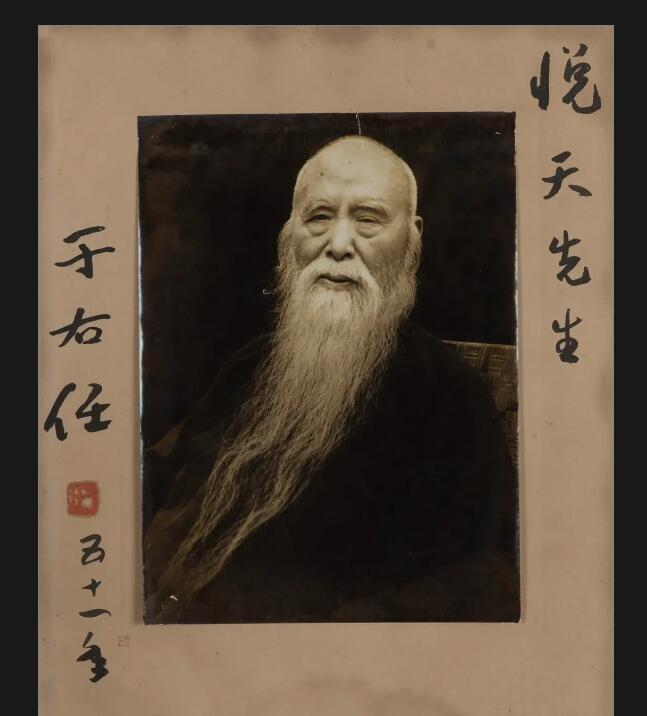 悦天先生
于右任
五十一年